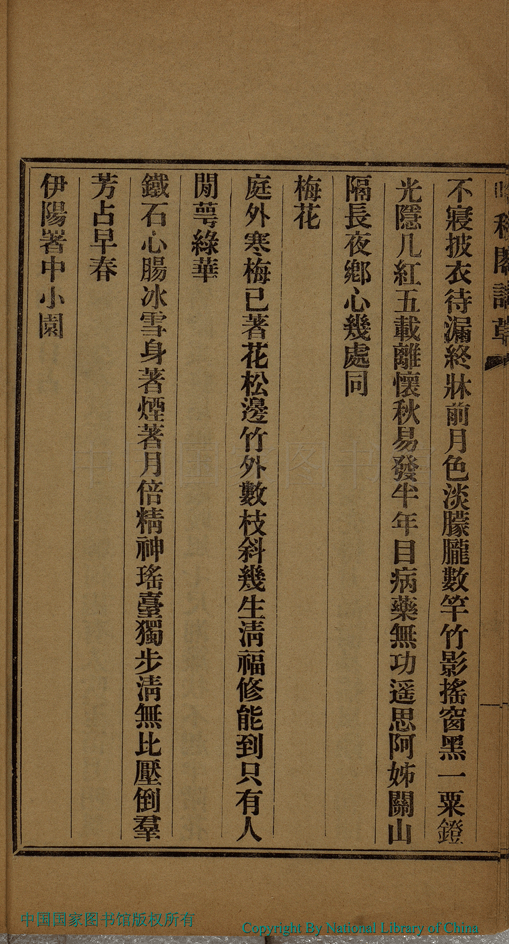 閣詩草
不寢披衣待漏終牀前月色淡朦朧數竿竹影搖窗黑一粟鐙
光隱几紅五載離懷秋易發半年目病藥無功遥思阿姊關山
隔長夜鄉心幾處同
梅花
庭外寒梅已著花松邊竹外數枝斜幾生淸福修能到只有人
閒萼綠華
鐵石心腸冰雪身著煙著月倍精神瑤臺獨步淸無比壓倒羣
芳占早春
伊陽署中小園
中国国家图书馆版权所有
Copyright By National Library of China